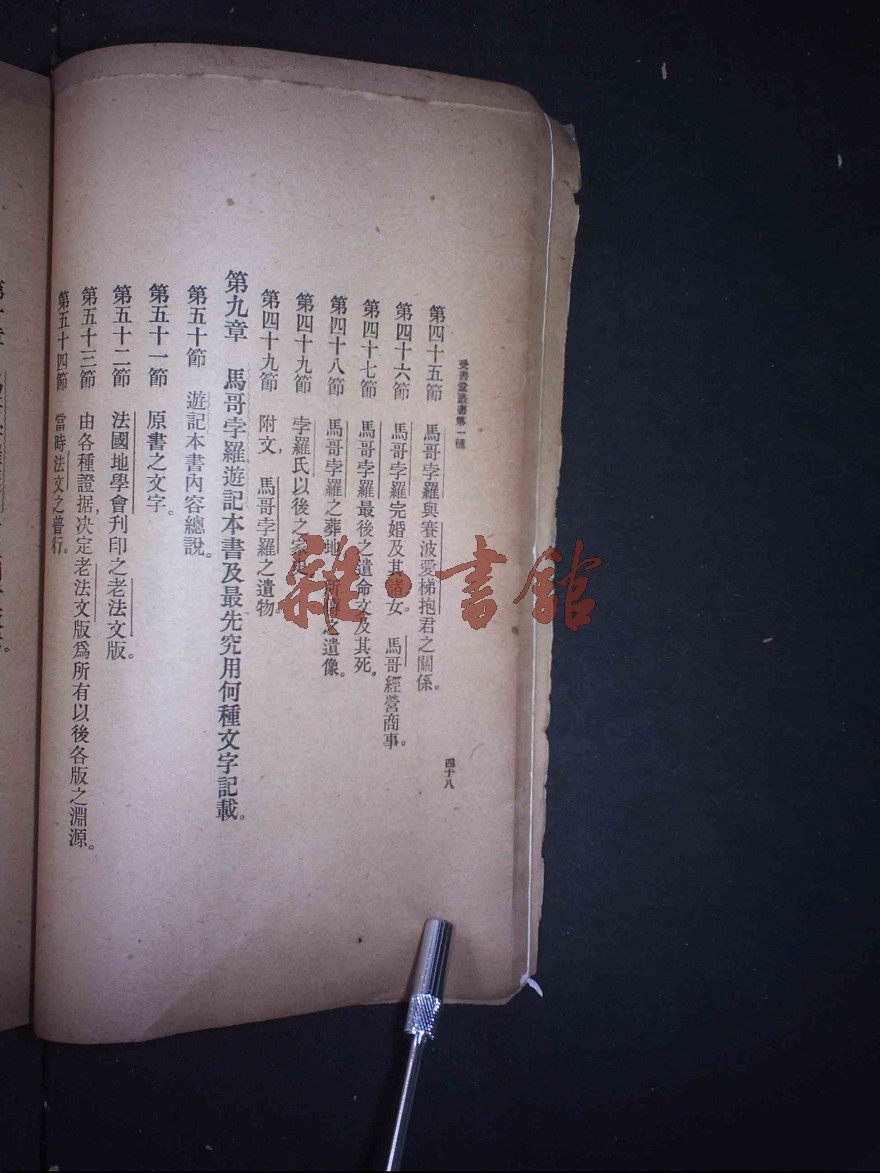 受書堂叢書第一種
四十八
第四十五節 馬哥孛羅與賽波愛梯抱君之關係。
第四十六節 馬哥孛羅完婚及其諸女。馬哥經營商事。
第四十七節 馬哥孛羅最後之遺命文及其死。
第四十八節 馬哥孛羅之葬地。所 之遺像。
第四十九節 孛羅氏以後之家史。
第四十九節 附文,馬哥孛羅之遺物。
第九章 馬哥孛羅遊記本書及最先究用何種文字記載。
第五十節 遊記本書內容總說。
第五十一節 原書之文字。
第五十二節 法國地學會刋印之老法文版。
第五十三節 由各種證据,决定老法文版爲所有以後各版之淵源。
第五十四節 當時法文之普行。
雜·書館